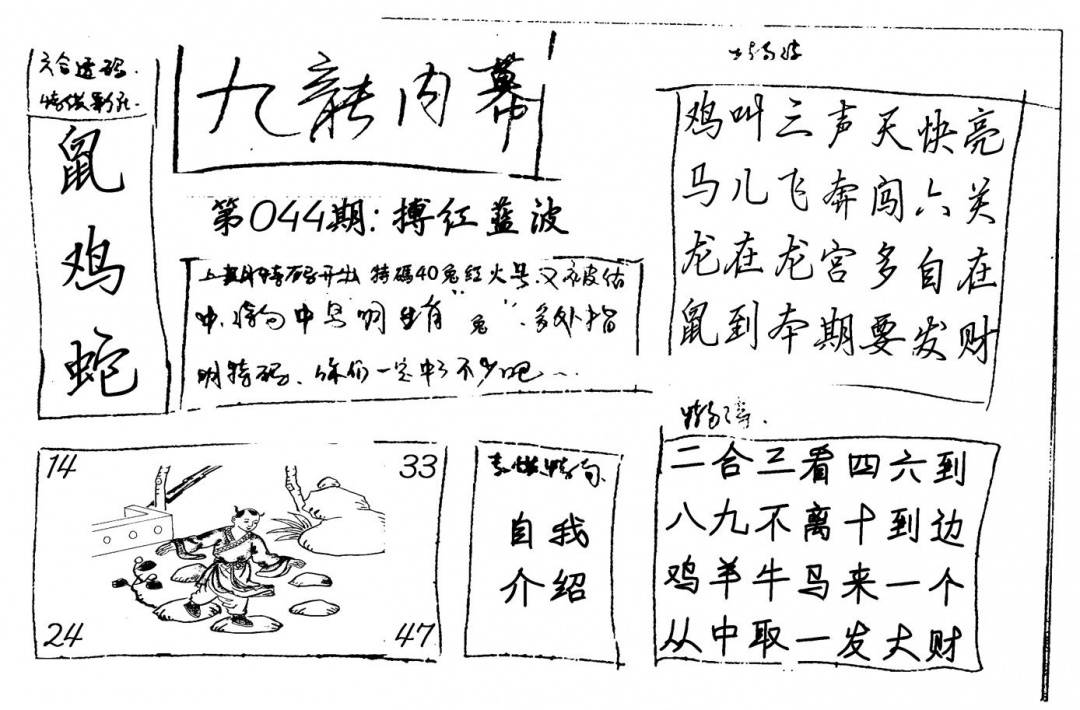 六合透码.
鼠
鸡
蛇
九龍内幕
第044期:搏红蓝波
上期 开出 特碼40兔红火号.又被估
中. 中 生肖"兔". 多处指
明特码. 你们一定中了不少吧...
鸡叫三声天快亮
马儿飞奔闯六关
龙在龙宫多自在
鼠到本期要发财
14
33
24
47
自我
介绍
二合三看四六到
八九不离十到边
鸡羊牛马来一个
从中取一发大财